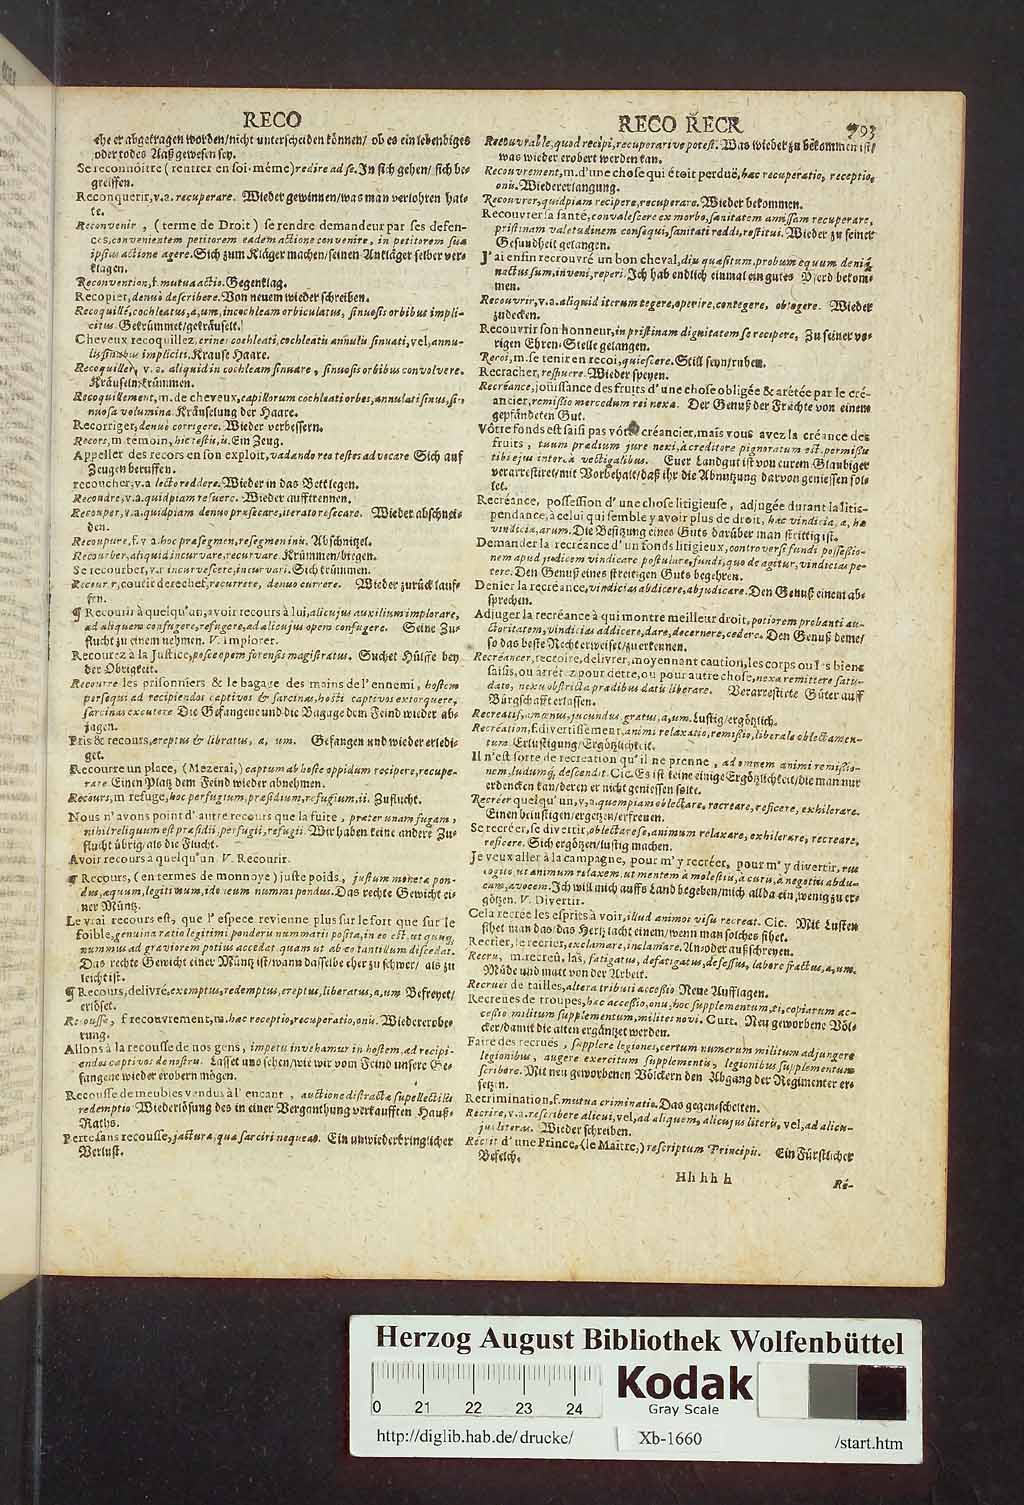 RECO
ehe er abgetragen worden/nicht unterscheiden können/ ob es ein lebendiges
oder todes Aaß gewesen sey.
Se reconnoitre (rentrer en soi-méme) redire ad se. In sich gehen/ sich be-
greiffen.
Reconquerir, v.a. recuperare. Wieder gewinnen/was man verlohren hat-
te.
Reconvenir, (terme de Droit) se rendre demandeur par ses defen-
ces, convenientem petitorem eadem actione convenire, in petitorem sua
ipsius actione agere. Sich zum Kläger machen/seinen Ankläger selber ver-
klagen.
Reconvention, f. mutua actio. Gegenklag.
Recopier, denuò describere. Von neuem wieder schreiben.
Recoquillé, cochleatus, a, um, in cochleam orbiculatus, sinuosis orbibus impli-
citus. Gekrümmet/gekräuselt.
Cheveux recoquillez, crines cochleati, cochleatis annulis sinuati, vel, annu-
lis sinibus impliciti. Krause Haare.
Recoquiller, v.a. aliquid in cochleam sinuare, sinuosis orbibus convolvere.
Kräuseln/krümmen.
Recoquillement, m. de cheveux, capillorum cochleati orbes, annulati sinus, si-
nuosa volumina. Kräuselung der Haare.
Recorriger, denuò corrigere. Wieder verbessern.
Recors, m. témoin, hic testis, is. Ein Zeug.
Appeller des recors en son exploit, vadando reo testes advocare Sich auf
Zeugen beruffen.
recoucher, v.a lecto reddere. Wieder in das Bett legen.
Recoudre, v.a. quidpiam resuere. Wieder aufftrennen.
Recouper, v.a. quidpiam denuo præsecare, iterato resecare. Wieder abschnei-
den.
Recoupure, f. v a. hoc præsegmen, resegmen inis. Abschnitzel.
Recourber, aliquid incurvare, recurvare. Krümmen/biegen.
Se recourber, v.r incurvescere, incurvari. Sich krümmen.
Recourir, courir derechef, recurrere, denuo currere. Wieder zurück lauf-
fen.
¶ Recourir à quelqu'un, avoir recours à lui, alicujus auxilium implorare,
ad aliquem confugere, refugere, ad alicujus opem confugere. Seine Zu-
flucht zu einem nehmen. V. implorer.
Recourez à la Justice, posce opem forensis magistratus. Suchet Hülffe bey
der Obrigkeit.
Recourre les prisonniers & le bagage des mains de l'ennemi, hostem
persequi ad recipiendos captivos & sarcinas, hosti captivos extorquere,
sarcinas excutere Die Gefangene und die Bagage dem Feind wieder ab-
jagen.
Pris & recours, ereptus & libratus, a, um. Gefangen und wieder erledi-
get.
Recourre un place, (Mezerai,) captum ab hoste oppidum recipere, recupe-
rare Einen Platz dem Feind wieder abnehmen.
Recours, m refuge, hoc perfugium, præsidium, refugium, ii. Zuflucht.
Nous n'avons point d'autre recours que la fuite, præter unam fugam,
nihil reliquum est præsidii, perfugii, refugii. Wir haben keine andere Zu-
flucht übrig/als die Flucht.
Avoir recours à quelqu'un V. Recourir.
¶ Recours, (en termes de monnoye) juste poids, justum monetæ pon-
dus, æquum, legitimum, idoneum nummi pondus. Das rechte Gewicht ei-
ner Müntz.
Le vrai recours est, que l'espece revienne plus sur le fort que sur le
foible, genuina ratio legitimi ponderis nummarii posita, in eo est, ut quisq;
nummus ad graviorem potius accedat quam ut ab eo tantillum discedat.
Das rechte Gewicht einer Müntz ist/wann dasselbe eher zu schwer/ als zu
leicht ist.
¶ Recours, delivré, exemptus, redemptus, ereptus, liberatus, a, um Befreyet/
erlöset.
Recousse, f recouvrement, m. hæc receptio, recuperatio, onis. Wiedererobe-
rung.
Allons à la recousse de nos gens, impetu invehamur in hostem, ad recipi-
endos captivos de nostris. Lasset uns sehen/wie wir vom Feind unsere Ge-
fangene wieder erobern mögen.
Recousse de meubles vendus à l'encant, auctione distractæ supellectilis
redemptio Wiederlösung des in einer Verganthung verkaufften Hauß-
Raths.
Perte sans recousse, jactura, quæ sarciri nequeat. Ein unwiederbringlicher
Verlust.
RECO RECR 793
Recouvrable, quod recipi, recuperarive potest. Was wieder zu bekommen ist/
was wieder erobert werden kan.
Recouvrement, m. d'une chose qui étoit perduë, hæc recuperatio, receptio,
onis. Wiedererlangung.
Recouvrer, quidpiam recipere, recuperare. Wieder bekommen.
Recouvrer la santé, convalescere ex morbo, sanitatem amissam recuperare,
pristinam valetudinem consequi, sanitati reddi, restitui. Wieder zu seiner
Gesundheit gelangen.
J'ai enfin recrouvré un bon cheval, diu quæsitum, probum equum deniq;
nactus sum, inveni, reperi. Ich hab endlich einmal ein gutes Pferd bekom-
men.
Recouvrir, v.a. aliquid iterum tegere, operire, contegere, obtegere. Wieder
zudecken.
Recouvrir son honneur, in pristinam dignitatem se recipere. Zu seiner vo-
rigen Ehren-Stelle gelangen.
Recoi, m. se tenir en recoi, quiescere. Still seyn/ruhen.
Recracher, respuere. Wieder speyen.
Recréance, joüissance des fruits d'une chose obligée & arétée par le cré-
ancier, remissio mercedum rei nexa. Der Genuß der Früchte von einem
gepfändeten Gut.
Vôtre fonds est saisi pas vôtre créancier, mais vous avez la créance des
fruits, tuum prædium jure nexi, à creditore pignoratum est, permissis
tibi ejus interea vectigalibus. Euer Landgut ist von eurem Glaubiger
verarrestiret/mit Vorbehalt/daß ihr die Abnutzung darvon geniessen sol-
let.
Recréance, possession d'une chose litigieuse, adjugée durant la litis-
pendance, à celui qui semble y avoir plus de droit, hæc vindicia, æ, hæ
vindiciæ, arum. Die Besitzung eines Guts darüber man strittig ist.
Demander la recréance d'un fonds litigieux, controversi fundi possessio-
nem apud judicem vindicare postulare, fundi, quo de agitur, vindicias pe-
tere. Den Genuß eines streitigen Guts begehren.
Denier la recréance, vindicias abdicere, abjudicare. Den Genuß einem ab-
sprechen.
Adjuger la recréance à qui montre meilleur droit, potiorem probanti au-
ctoritatem, vindicias addicere, dare, decernere, cedere. Den Genuß deme/
so das beste Recht erweiset/zuerkennen.
Recréancer, rectoire, delivrer, moyennant caution, les corps ou les biens
saisis, ou arrétez pour dette, ou pour autre chose, nexa remittere satis-
dato, nexu obstricta prædibus datis liberare. Verarrestirte Güter auff
Bürgschafft erlassen.
Recreatif, amœnus, jucundus gratus, a, um. Lustig/ergötzlich.
Recréation, f. divertissement, animi relaxatio, remissio, liberale oblectamen-
tum. Erlustigung/Ergötzlichkeit.
Il n'est sorte de recreation qu'il ne prenne, ad omnem animi remissio-
nem, ludumq; descendit. Cic. Es ist keine einige Ergötzlichkeit/die man nur
erdencken kan/deren er nicht geniessen solte.
Recréer quelqu'un, v.a. quempiam oblectare, recreare, reficere, exhilerare.
Einen belustigen/ergetzen/erfreuen.
Se recréer, se divertir, oblectare se, animum relaxare, exhilerare, recreare,
reficere. Sich ergötzen/lustig machen.
Je veux aller à la campagne, pour m'y recréer, pour m'y divertir, rus
cogito ut animum relaxem, ut mentem à molestiis, à curis, à negotiis abdu-
cam, avocem. Ich will mich auffs Land begeben/mich allda ein wenig zu er-
götzen. V. Divertir.
Cela recrée les esprits à voir, illud animos visu recreat. Cic. Mit Lusten
sihet man das/das Hertz lacht einem/wenn man solches sihet.
Recrier, se recrier, exclamare, inclamare. An- oder außschreyen.
Recru, m. recreû, las, fatigatus, defatigatus, defessus, labore fractus, a, um.
Müde und matt von der Arbeit.
Recrues de tailles, altera tributi accessio Neue Aufflagen.
Recreües de troupes, hæc accessio, onis, hoc supplementum, ti, copiarum ac-
cessio militum supplementum, milites novi. Curt. Neu geworbene Völ-
cker/damit die alten ergäntzet werden.
Faire des recrues, supplere legiones, certum numerum militum adjungere
legionibus, augere exercitum supplementis, legionibus supplementum
scribere. Mit neu geworbenen Völckern den Abgang der Regimenter er-
setzen.
Recrimination, f. mutua criminatio. Das gegen-schelten.
Recrire, v.a. rescribere alicui, vel, ad aliquem, alicujus literis, vel, ad alicu-
jus literas. Wieder schreiben.
Récrit d'une Prince, (le Maitre,) rescriptum Principis. Ein Fürstlicher
Befelch.
Hhhhh
Ré-
Herzog August Bibliothek Wolfenbüttel
Kodak
Gray Scale
0 21 22 23 24
http://diglib.hab.de/drucke/ Xb-1660 /start.htm